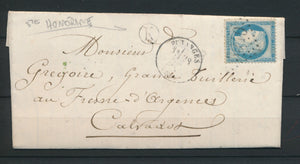 Ste HONORINE
K
PUTANGES
Monsieur
Gregoire, Grande Tuillerie
au Fresne d'Argences
Calvados